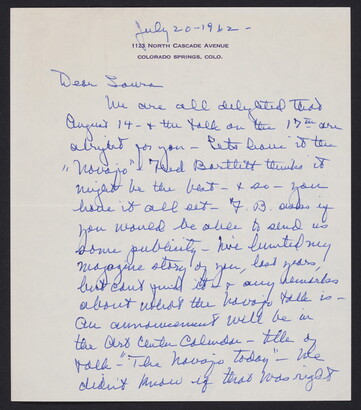 July 20-1962-
1123 NORTH CASCADE AVENUE
COLORADO SPRINGS, COLO.
Dear Laura
We are all delighted that
August 14 - & the talk on the 17th are
alright for you - Lets leave it the
"Navajo" - Fred Bartlett thinks it
might be the best - & so - you
have it all set - F. B. asks if
you would be able to send us
some publicity - I've hunted my
magazine story of you, last years,
but can't find it - & any remarks
about what the Navajo talk is -
An announcement will be in
the Art Center Calendar - title of
talk - "The Navajo today" - We
didn't know if that was right